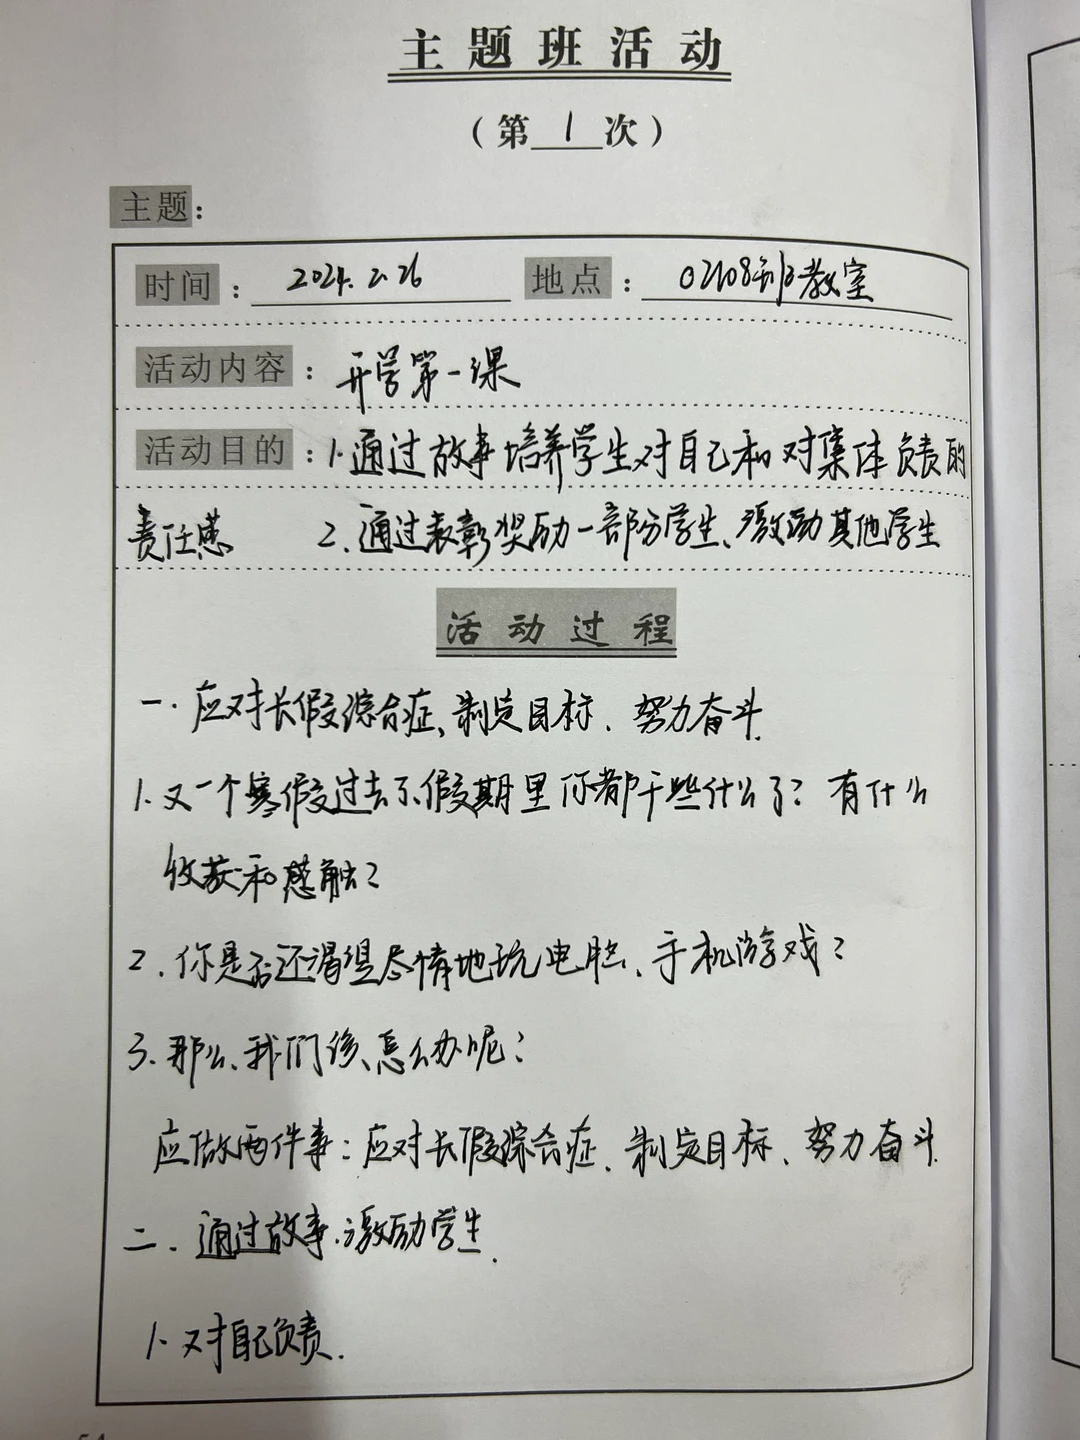 主题班活动
（第 1 次）
主题：
时间： 2024.2.26 地点： 02108班教室
活动内容： 开学第一课
活动目的： 1.通过故事培养学生对自己和对集体负责的
责任感 2.通过表彰奖励一部分学生、激励其他学生
活动过程
一.应对长假综合症、制定目标、努力奋斗.
1.又一个寒假过去了、假期里你都干些什么了？有什么
收获和感触？
2.你是否还渴望尽情地玩电脑、手机游戏？
3.那么、我们该、怎么办呢？
应做两件事：应对长假综合症、制定目标、努力奋斗.
二.通过故事、激励学生.
1.对自己负责.